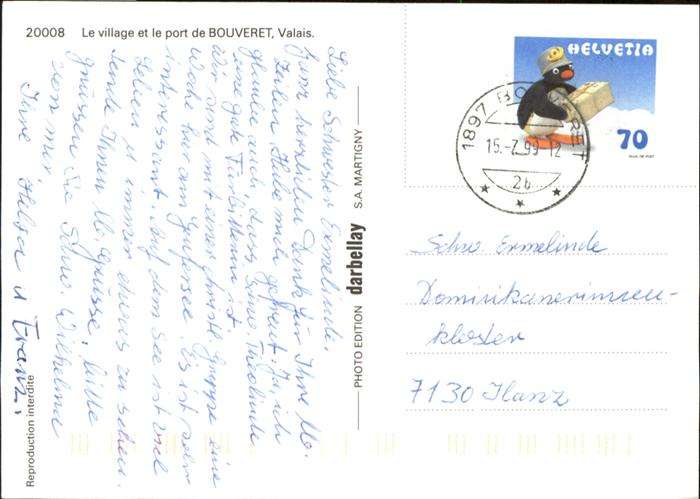 20008 Le village et le port de BOUVERET, Valais.
Liebe Schwester Ermelinde,
Ganz herzlichen Dank für Ihre lb.
Zeilen. Habe mich gefreut. Ja, ich
glaube auch, dass Smie Theolinde
eine gute Fürbitterin ist.
Wir sind mit einer Gruppe eine
Woche hier am Genfersee. Es ist sehr
interessant. Auf dem See ist viel
Leben u immer etwas zu sehen.
Sende Ihnen lb. Grüsse, bitte
grüssen Sie Schw. Wilhelma
von mir,
Ihre Helga u Franz.
Reproduction interdite
PHOTO EDITION darbellay S.A. MARTIGNY
HELVETIA
70
1897 BOUVERET
15.-7.99-12
2b
Schw. Ermelinde
Dominikanerinnen-
kloster
7130 Ilanz